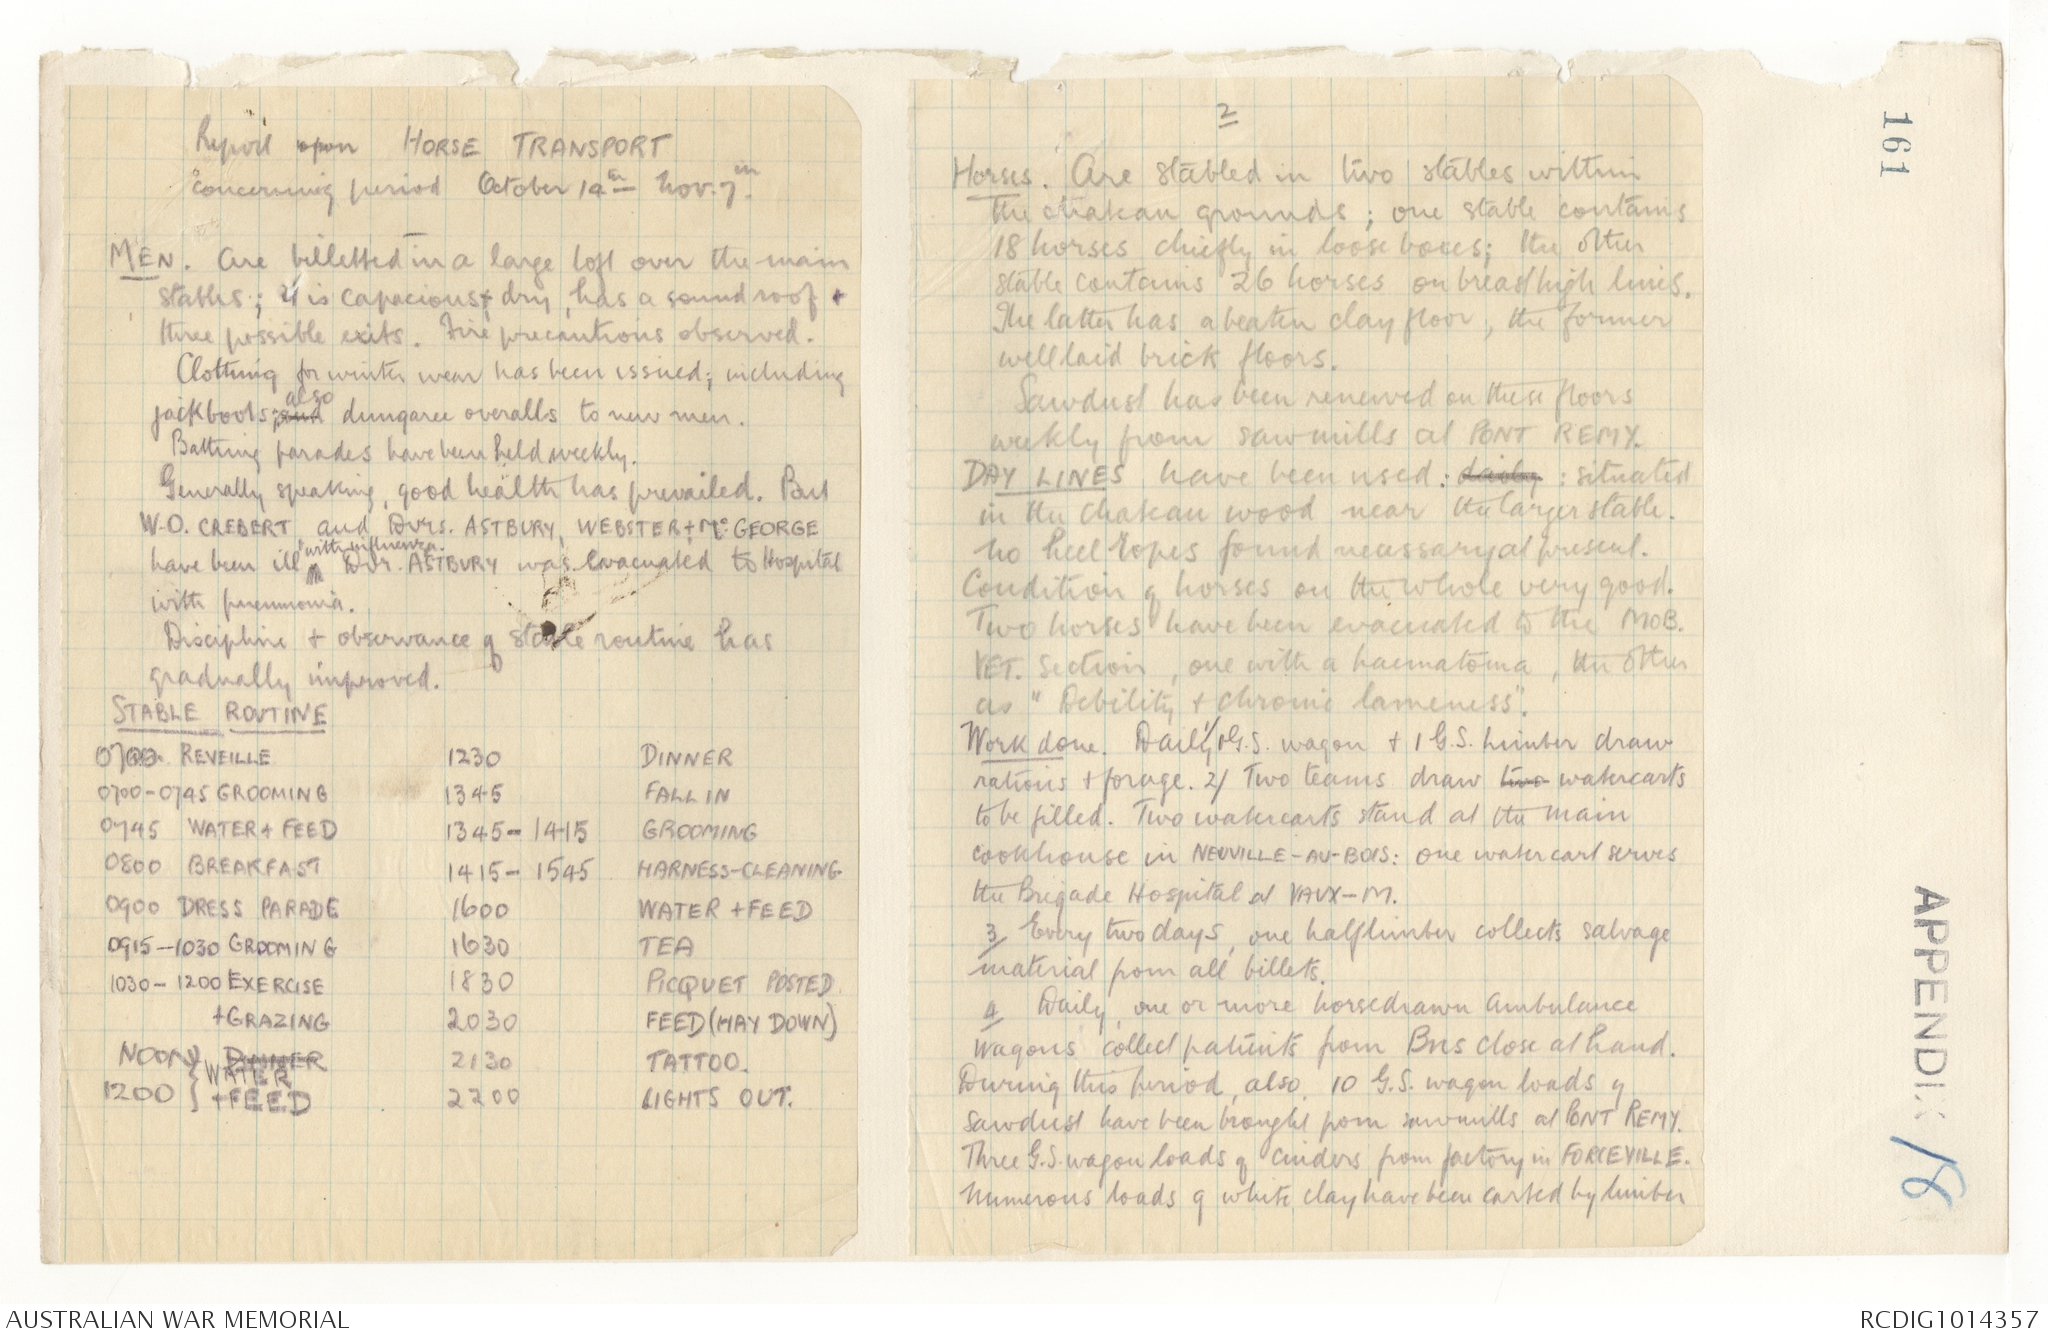 Report upon HORSE TRANSPORT
concerning period October 14th - Nov. 7th.
MEN. Are billetted in a large loft over the main
stables; it is capacious & dry, has a sound roof +
three possible exits. Fire precautions observed.
Clothing for winter wear has been issued; including
jackboots; and also dungaree overalls to new men.
Bathing parades have been held weekly.
Generally speaking, good health has prevailed. But
W.O. CREBERT and Dvrs. ASTBURY, WEBSTER + McGEORGE
have been ill with influenza. Dvr. ASTBURY was evacuated to Hospital
with pneumonia.
Discipline + observance of stable routine has
gradually improved.
STABLE ROUTINE
REVEILLE
0700-0745 GROOMING
0745 WATER + FEED
0800 BREAKFAST
0900 DRESS PARADE
0915-1030 GROOMING
1030-1200 EXERCISE
+GRAZING
NOON DINNER
1200 WATER
+FEED
1230 DINNER
1345 FALL IN
1345-1415 GROOMING
1415-1545 HARNESS-CLEANING
1600 WATER + FEED
1630 TEA
1830 PICQUET POSTED
2030 FEED (HAY DOWN)
2130 TATTOO.
2200 LIGHTS OUT.
2
Horses. Are stabled in two stables within
the chateau grounds; one stable contains
18 horses chiefly in loose boxes; the other
stable contains 26 horses on breast high lines.
The latter has a beaten clay floor, the former
well laid brick floors.
Sawdust has been renewed on these floors
weekly from sawmills at PONT REMY.
DAY LINES have been used: daily: situated
in the chateau wood near the larger stable.
No heel ropes found necessary at present.
Condition of horses on the whole very good.
Two horses have been evacuated to the MOB.
VET. Section, one with a haematoma, the other
as "Debility + chronic lameness".
Work done. Daily, 1/ 1 G.S. wagon + 1 G.S. limber draw
rations + forage. 2/ Two teams draw two watercarts
to be filled. Two watercarts stand at the main
cookhouse in NEUVILLE-AU-BOIS: one watercart serves
the Brigade Hospital at VAUX-M.
3 Every two days, one half limber collects salvage
material from all billets.
4 Daily, one or more horsedrawn Ambulance
Wagons collect patients from Bns close at hand.
During this period, also, 10 G.S. wagon loads of
sawdust have been brought from sawmills at PONT REMY.
Three G.S. wagon loads of cinders from factory in FORCEVILLE.
Numerous loads of white clay have been carted by limber
161
APPENDIX 18
AUSTRALIAN WAR MEMORIAL
RCDIG1014357